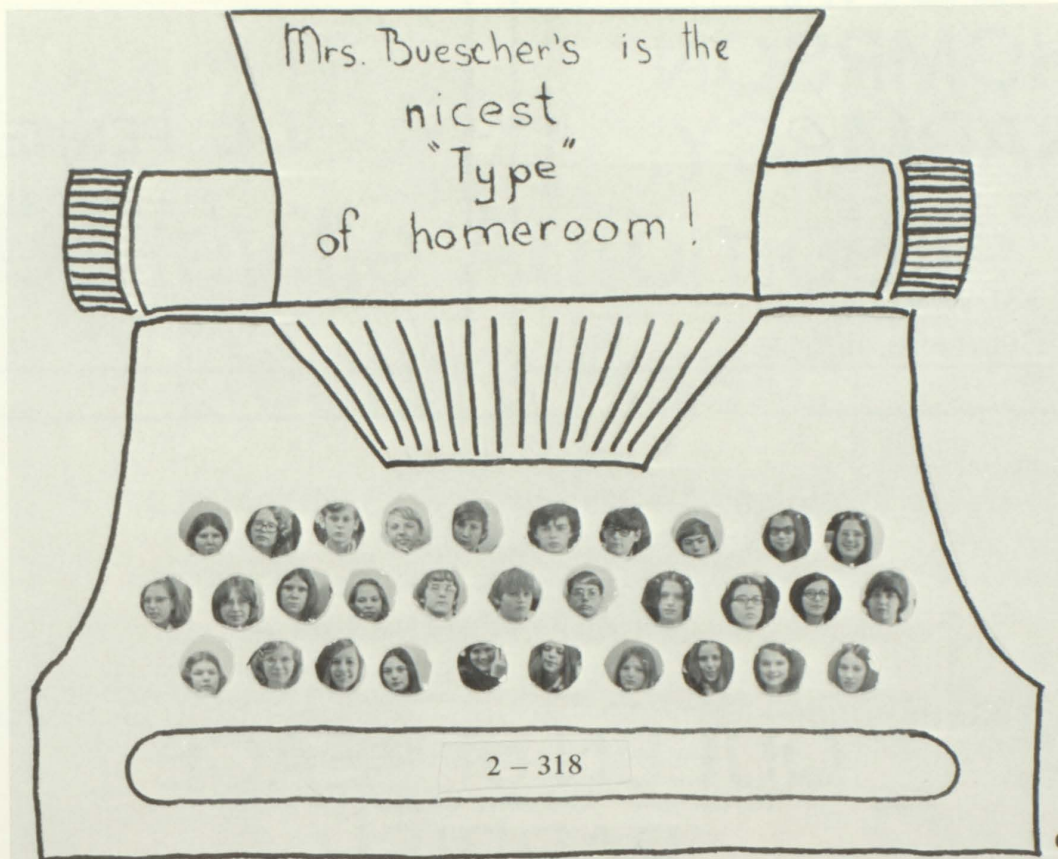 Mrs. Buescher's is the
nicest
"Type"
of homeroom!
2 – 318